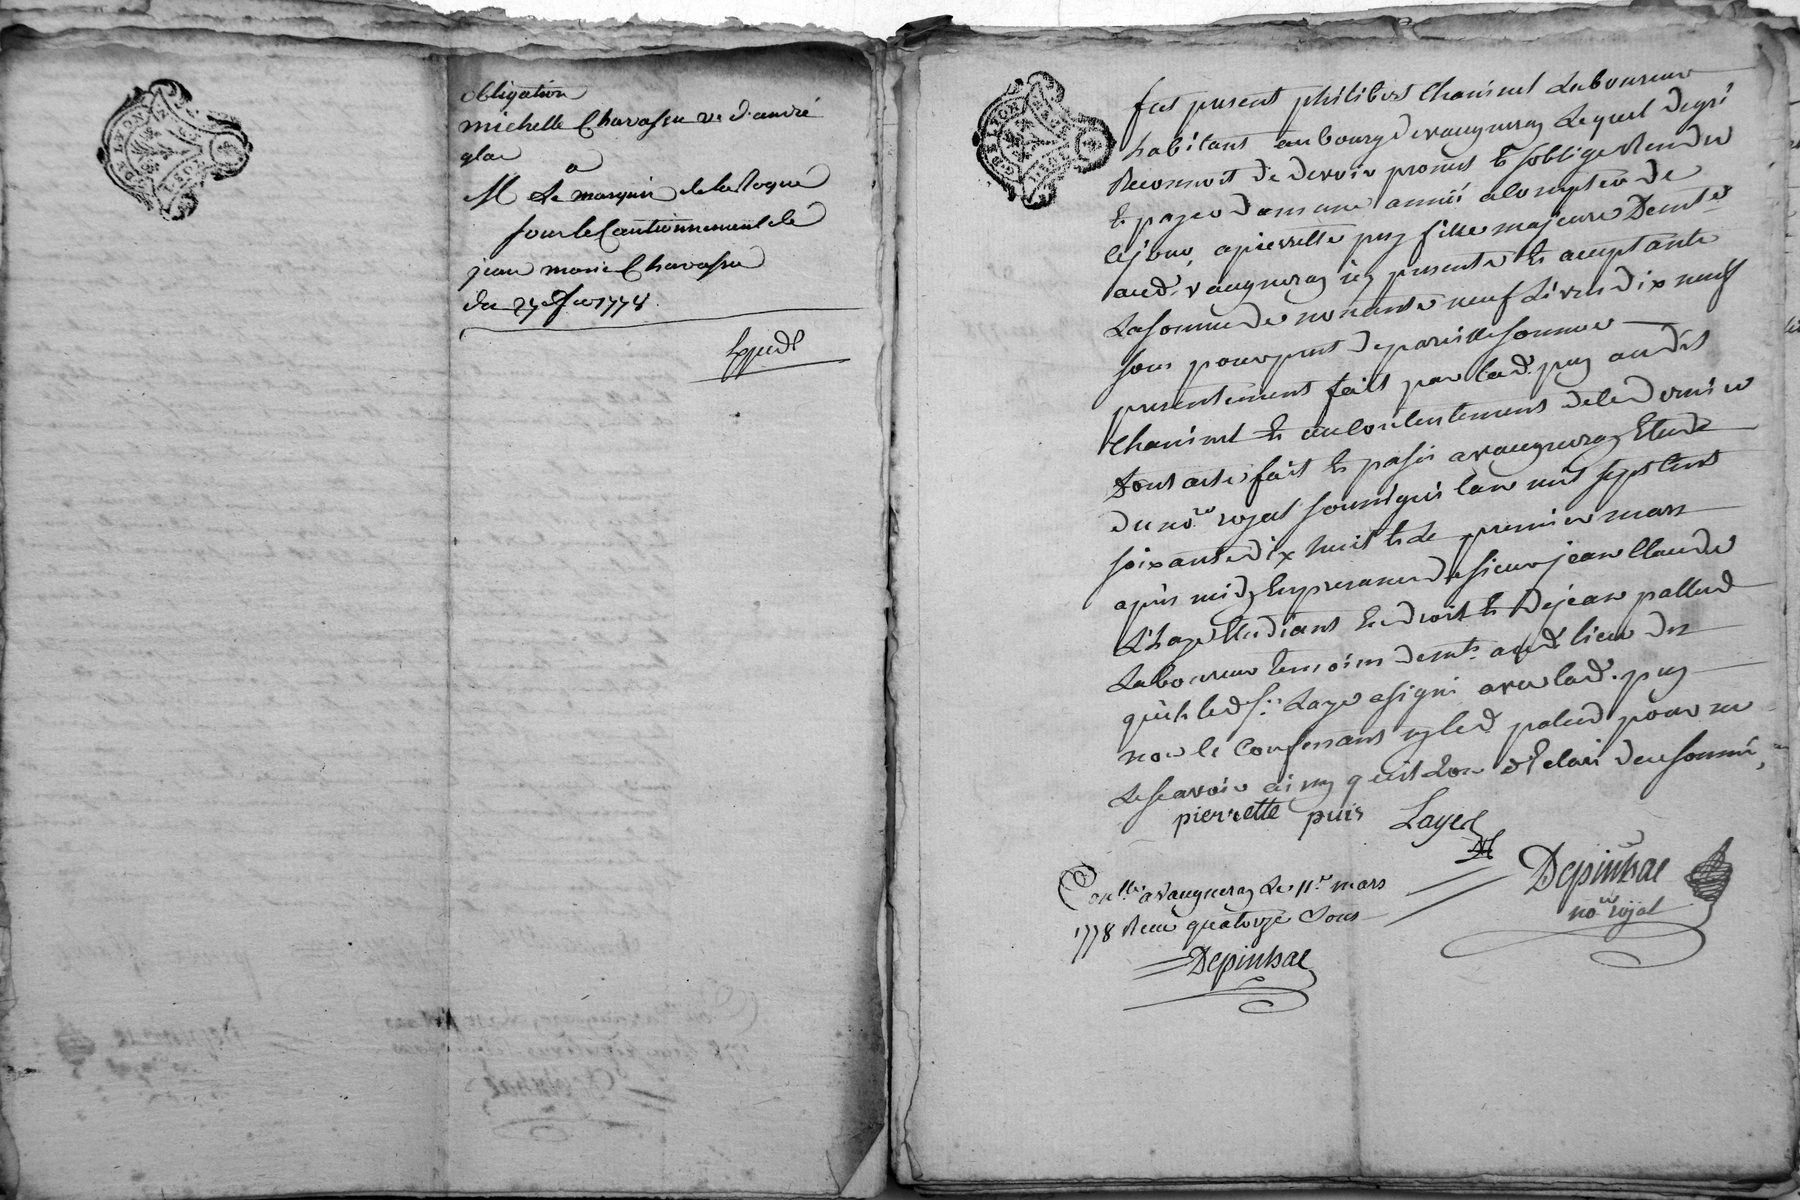 obligation
michelle Chavassu ve d'andré
glas
a
M Le marquis de la Roque
sous le Cautionnement de
jean marie Chavassu
du 27 1778
Expedé
fut present philibert Chanivet Laboureur
habitant au bourg de vaugneray Lequel de gré
Reconnoit de devoir promet et soblige Rendre
et payer dans une année a Compter de
ce jour, a pierrette puy fille majeure Demte
aud. vaugneray icy presente et acceptante
La somme de nonante neuf Livres dix neuf
sous pour prest de pareille somme
presentement fait par lad. puy audit
Chanivet et au Contentement de le dernier
Dont acte fait et passé a vaugneray Etude
du nore royal soussigné l'an mil sept cent
soixante dix huit et le premier mars
apres midy En presence de sieur jean Claude
Laye Etudiant En droit et de jean pallud
Laboureur temoins demts. aud. lieu du
quels led. sr. Laye a signé avec lad. puy
non le Confessant ny led. palud pour ne
Le scavoir ainsy qu'il L'on déclaré de ce sommé,
pierrette puis Layed
Depinhac
nore royal
Conlle a Vaugneray Le 11r mars
1778 Reçu quatorze Sous
Depinhac